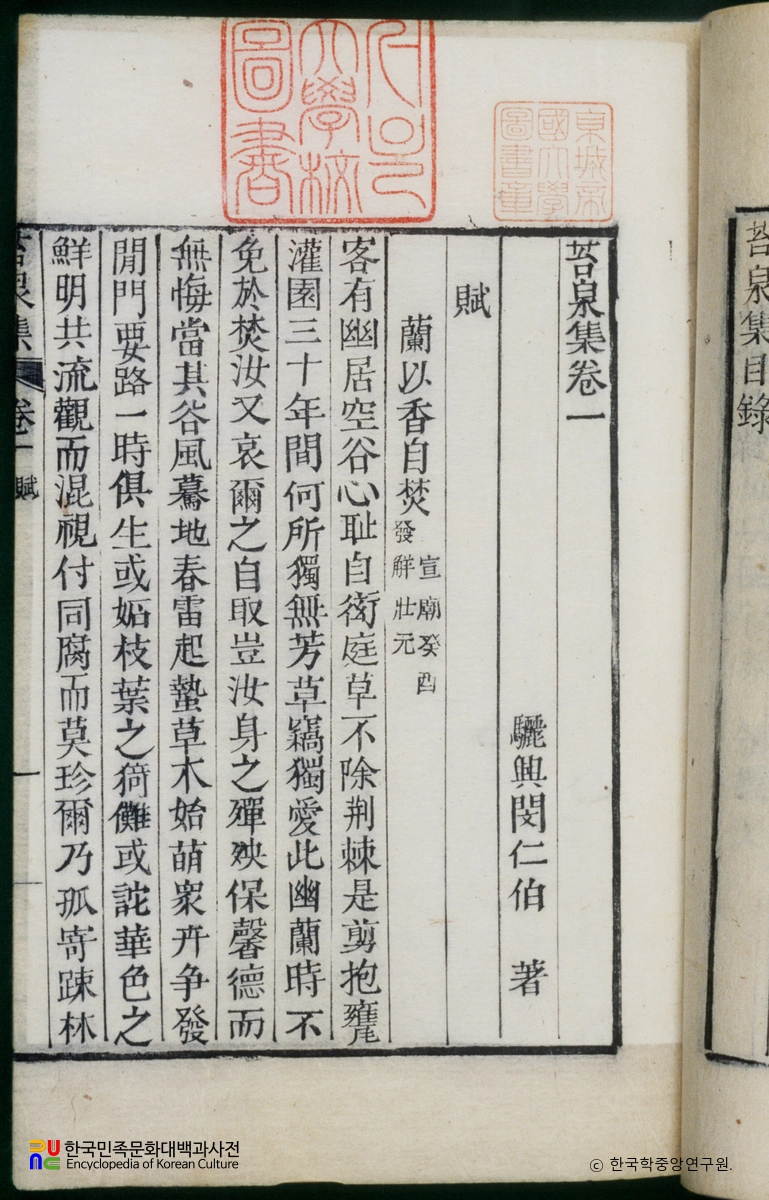 苔泉集卷一
驪興閔仁伯 著
賦
蘭以香自焚 宣廟癸酉
發解壯元
客有幽居空谷心耻自衒庭草不除荆棘是剪抱甕
灌園三十年間何所獨無芳草竊獨愛此幽蘭時不
免於焚汝又哀爾之自取豈汝身之殫殃保馨德而
無悔當其谷風驀地春雷起蟄草木始萌衆卉争發
閒門要路一時俱生或妬枝葉之猗儺或詫華色之
鮮明共流觀而混視付同腐而莫珍爾乃孤寄踈林
苔泉集 卷一 賦 一
苔泉集目錄
大學校
圖書
東城帝
國大學
圖書章
한국민족문화대백과사전
Encyclopedia of Korean Culture
ⓒ 한국학중앙연구원.